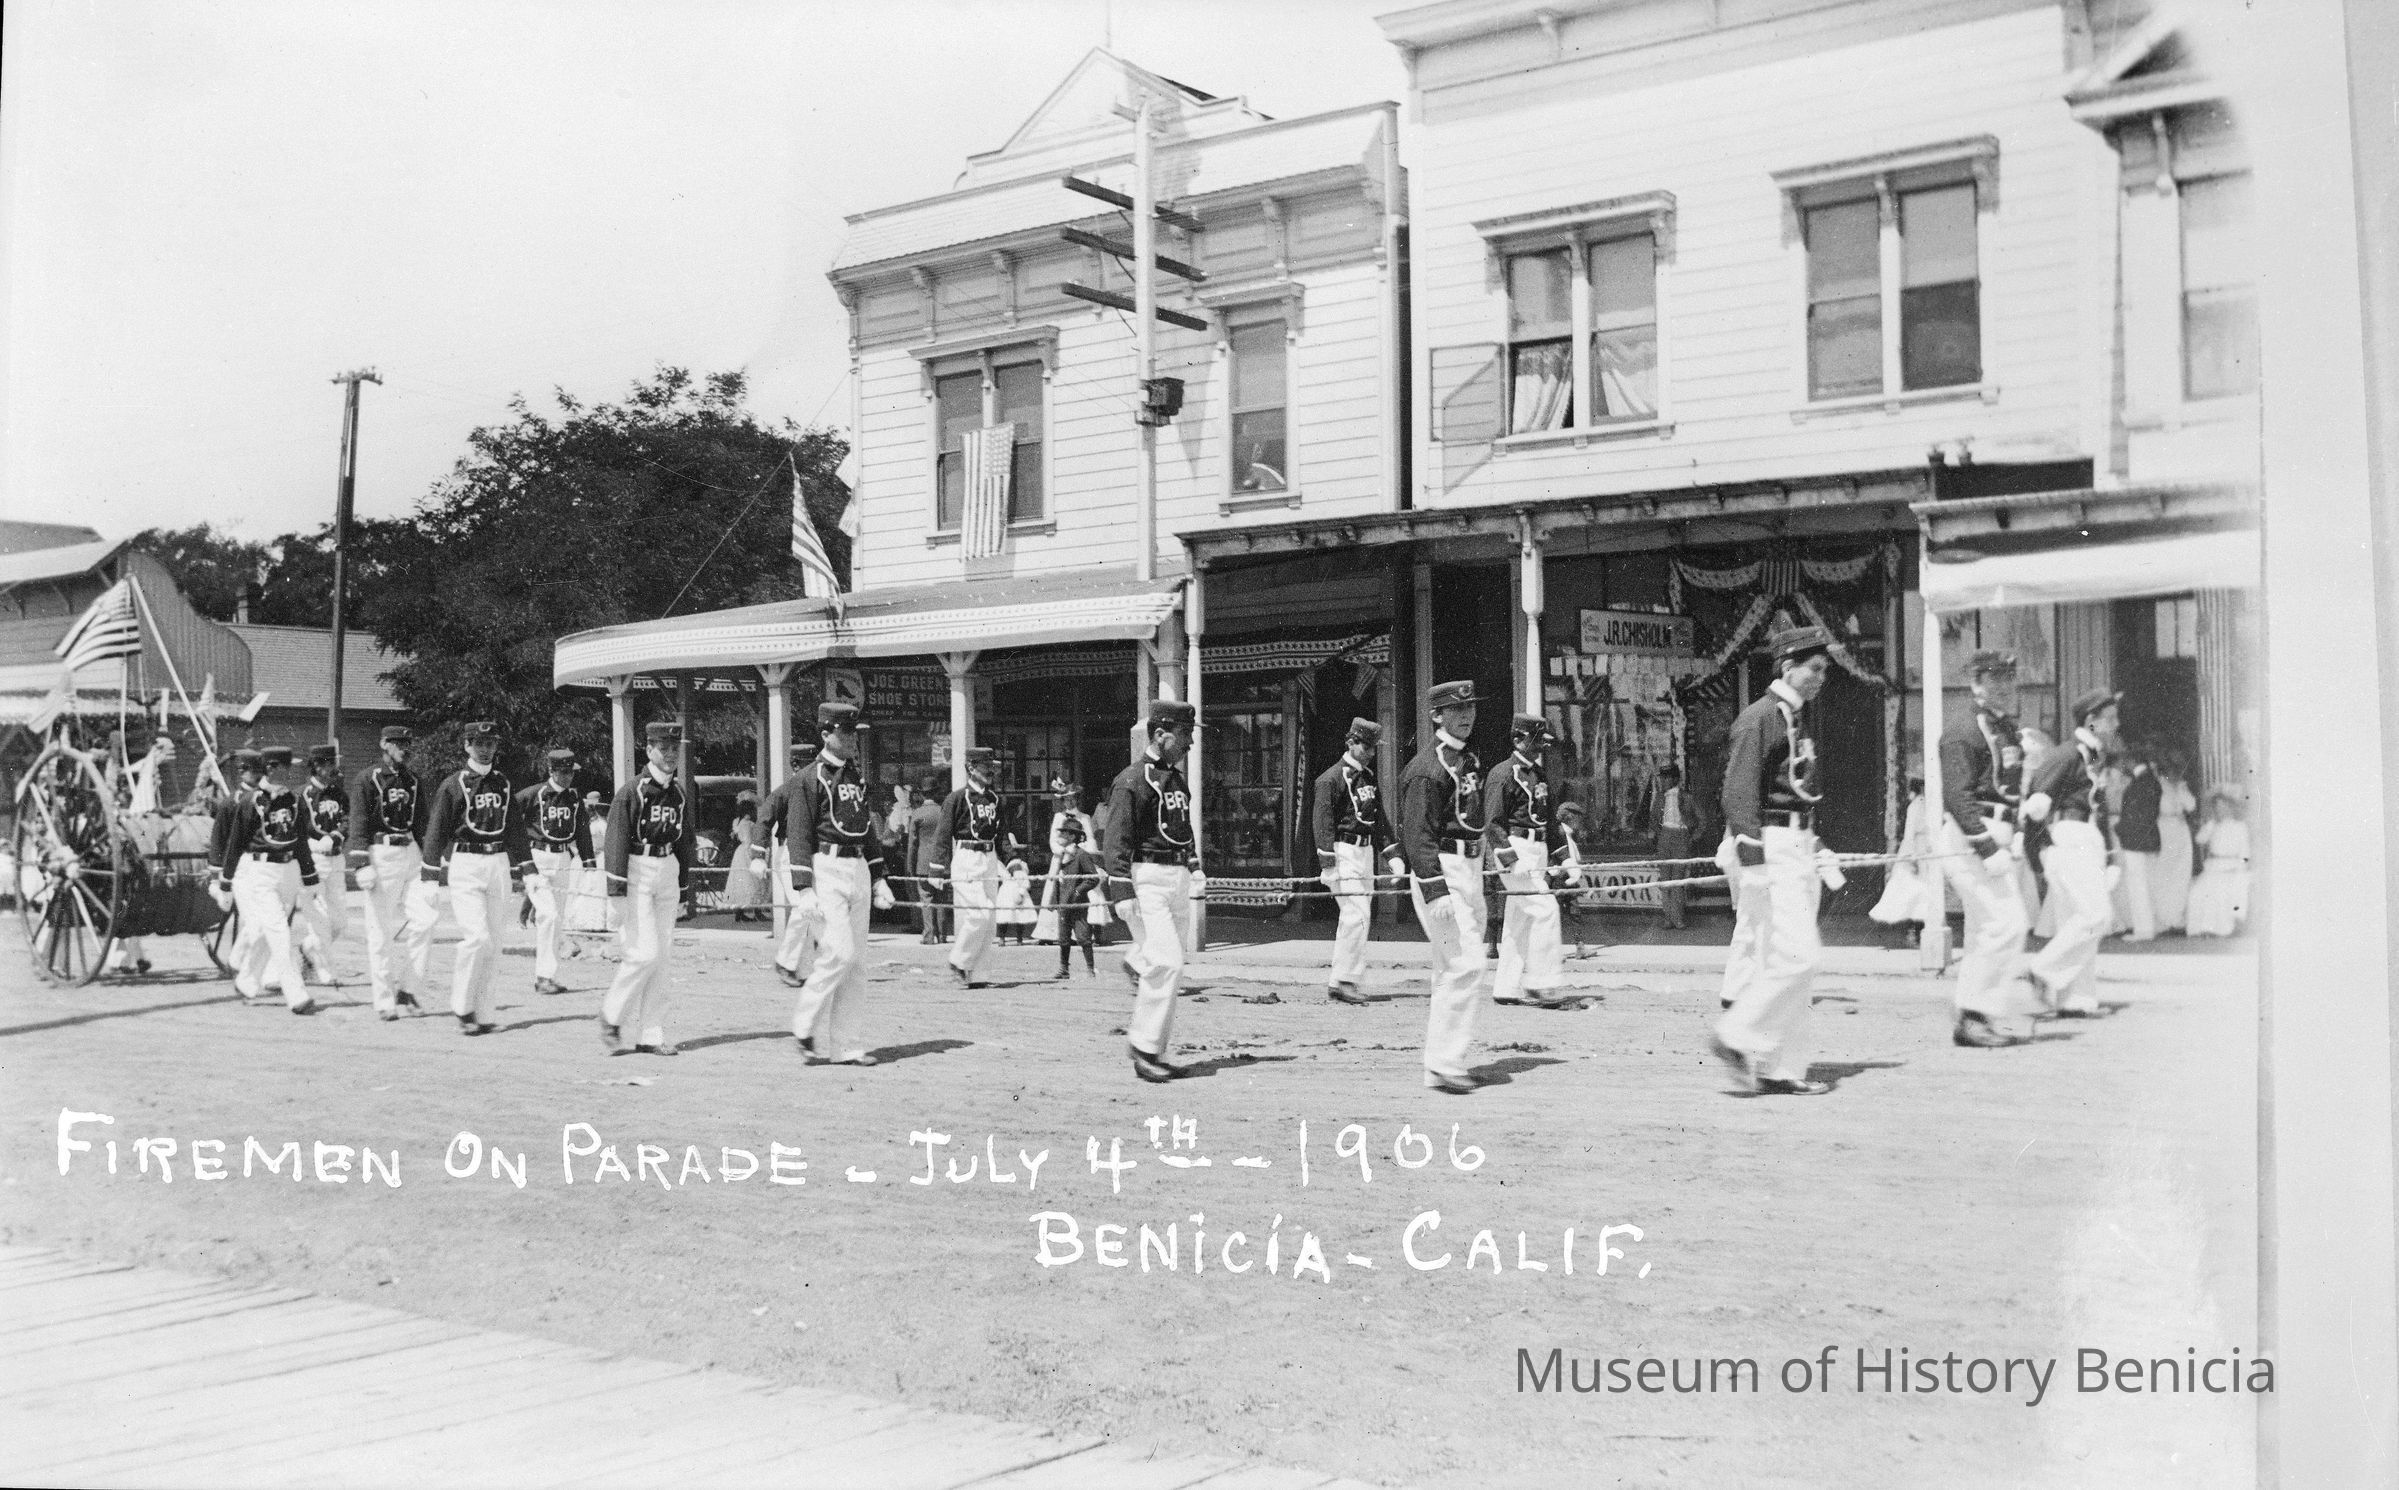 JOE. GREEN
SHOE STORE
J.R. CHISHOLM
BFD
BFD
BFD
BFD
BFD
BFD
BFD
BFD
WORK
FIREMEN ON PARADE - JULY 4TH - 1906
BENICIA - CALIF.
Museum of History Benicia